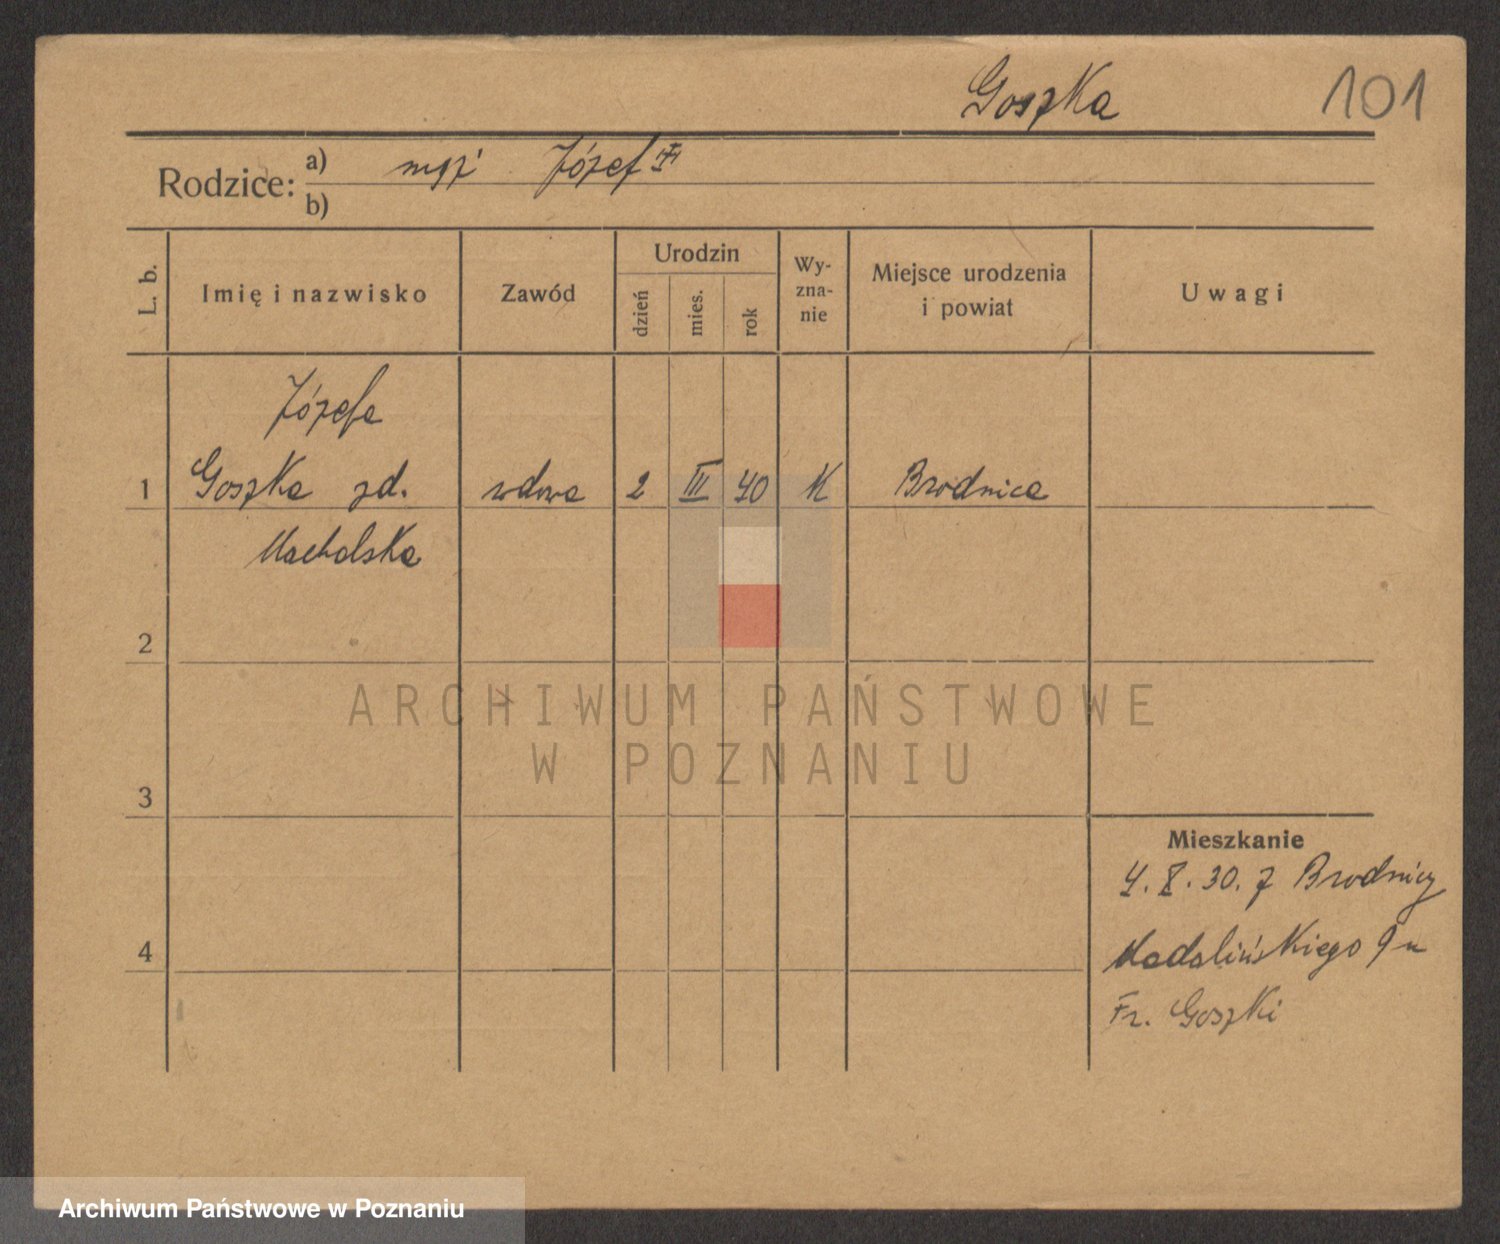 Goszka 101
Rodzice: a) mąż Józef
b)
L. b. Imię i nazwisko Zawód Urodzin dzień mies. rok Wy-zna-nie Miejsce urodzenia i powiat Uwagi
Józefa
1 Goszka zd. wdowa 2 III 40 K Brodnica
Macholska
2
ARCHIWUM PAŃSTWOWE
W POZNANIU
3
Mieszkanie
4. X. 30. z Brodnicy
4
Madalińskiego 9 u
Fr. Goszki
Archiwum Państwowe w Poznaniu